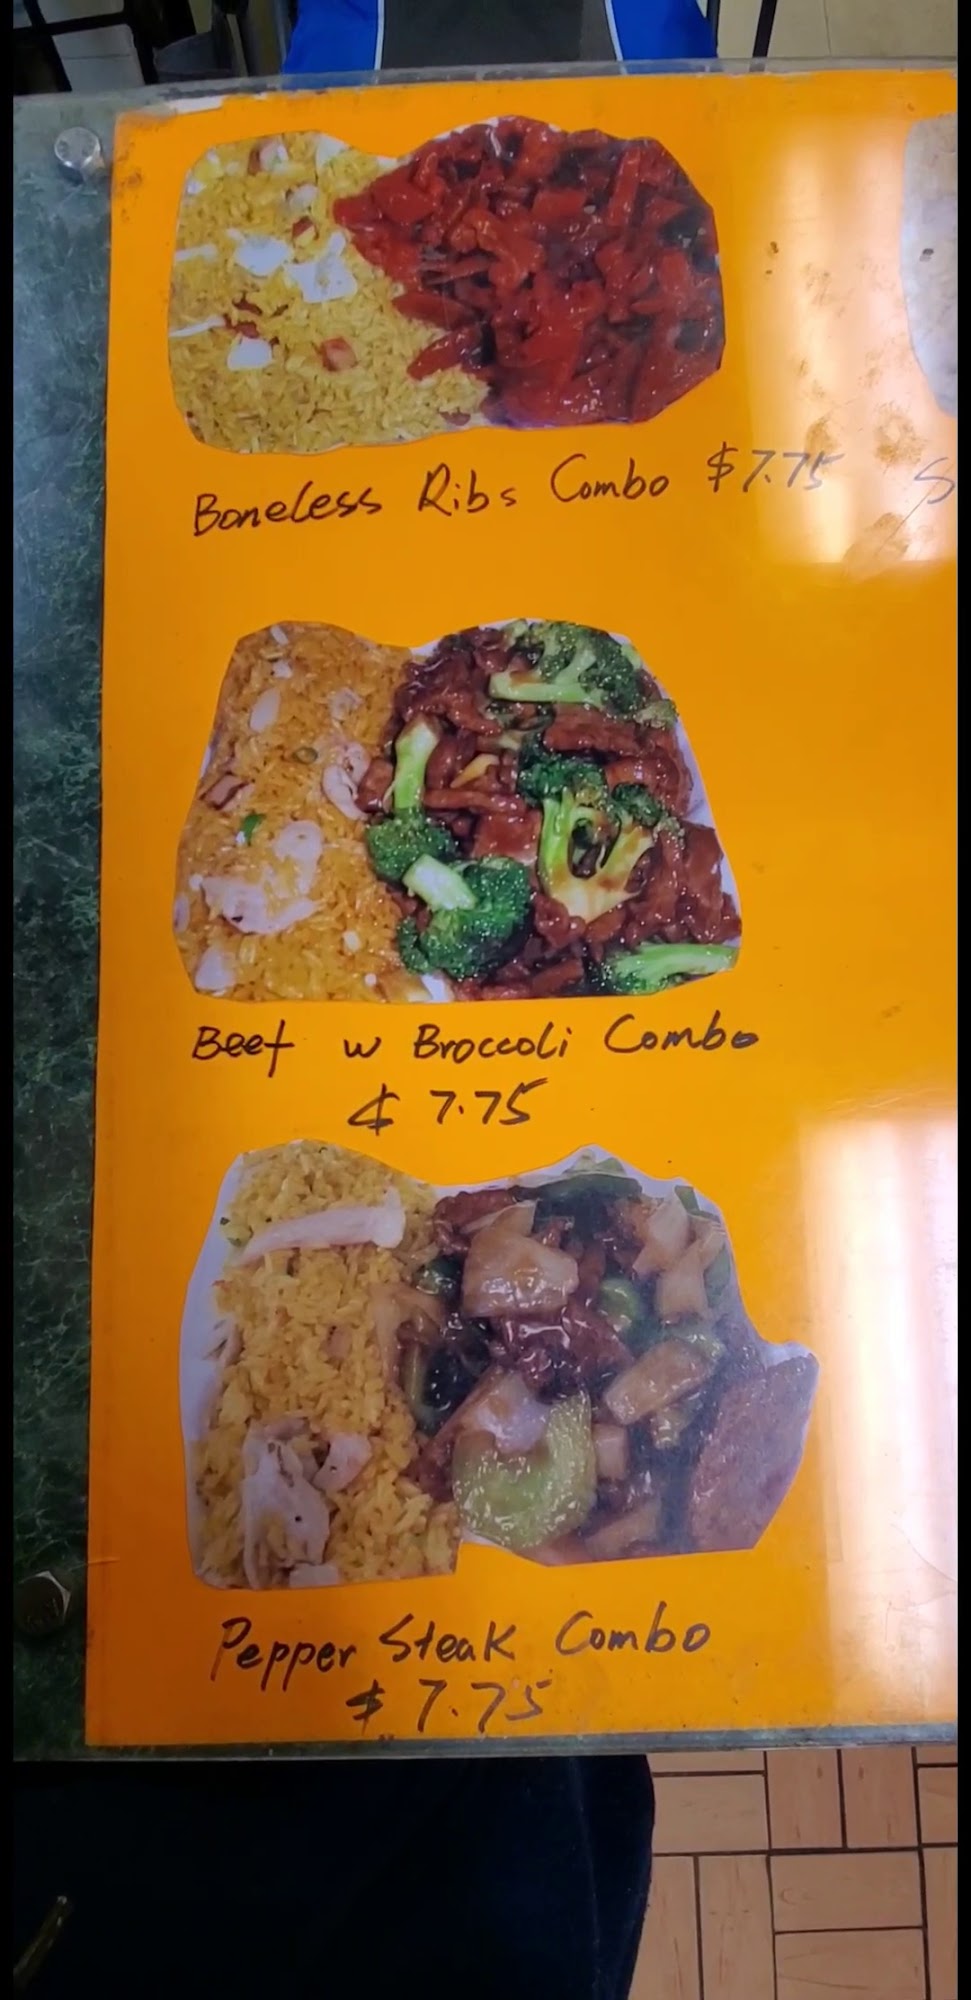 Boneless Ribs Combo $7.75
Beef w Broccoli Combo
$7.75
Pepper Steak Combo
$7.75